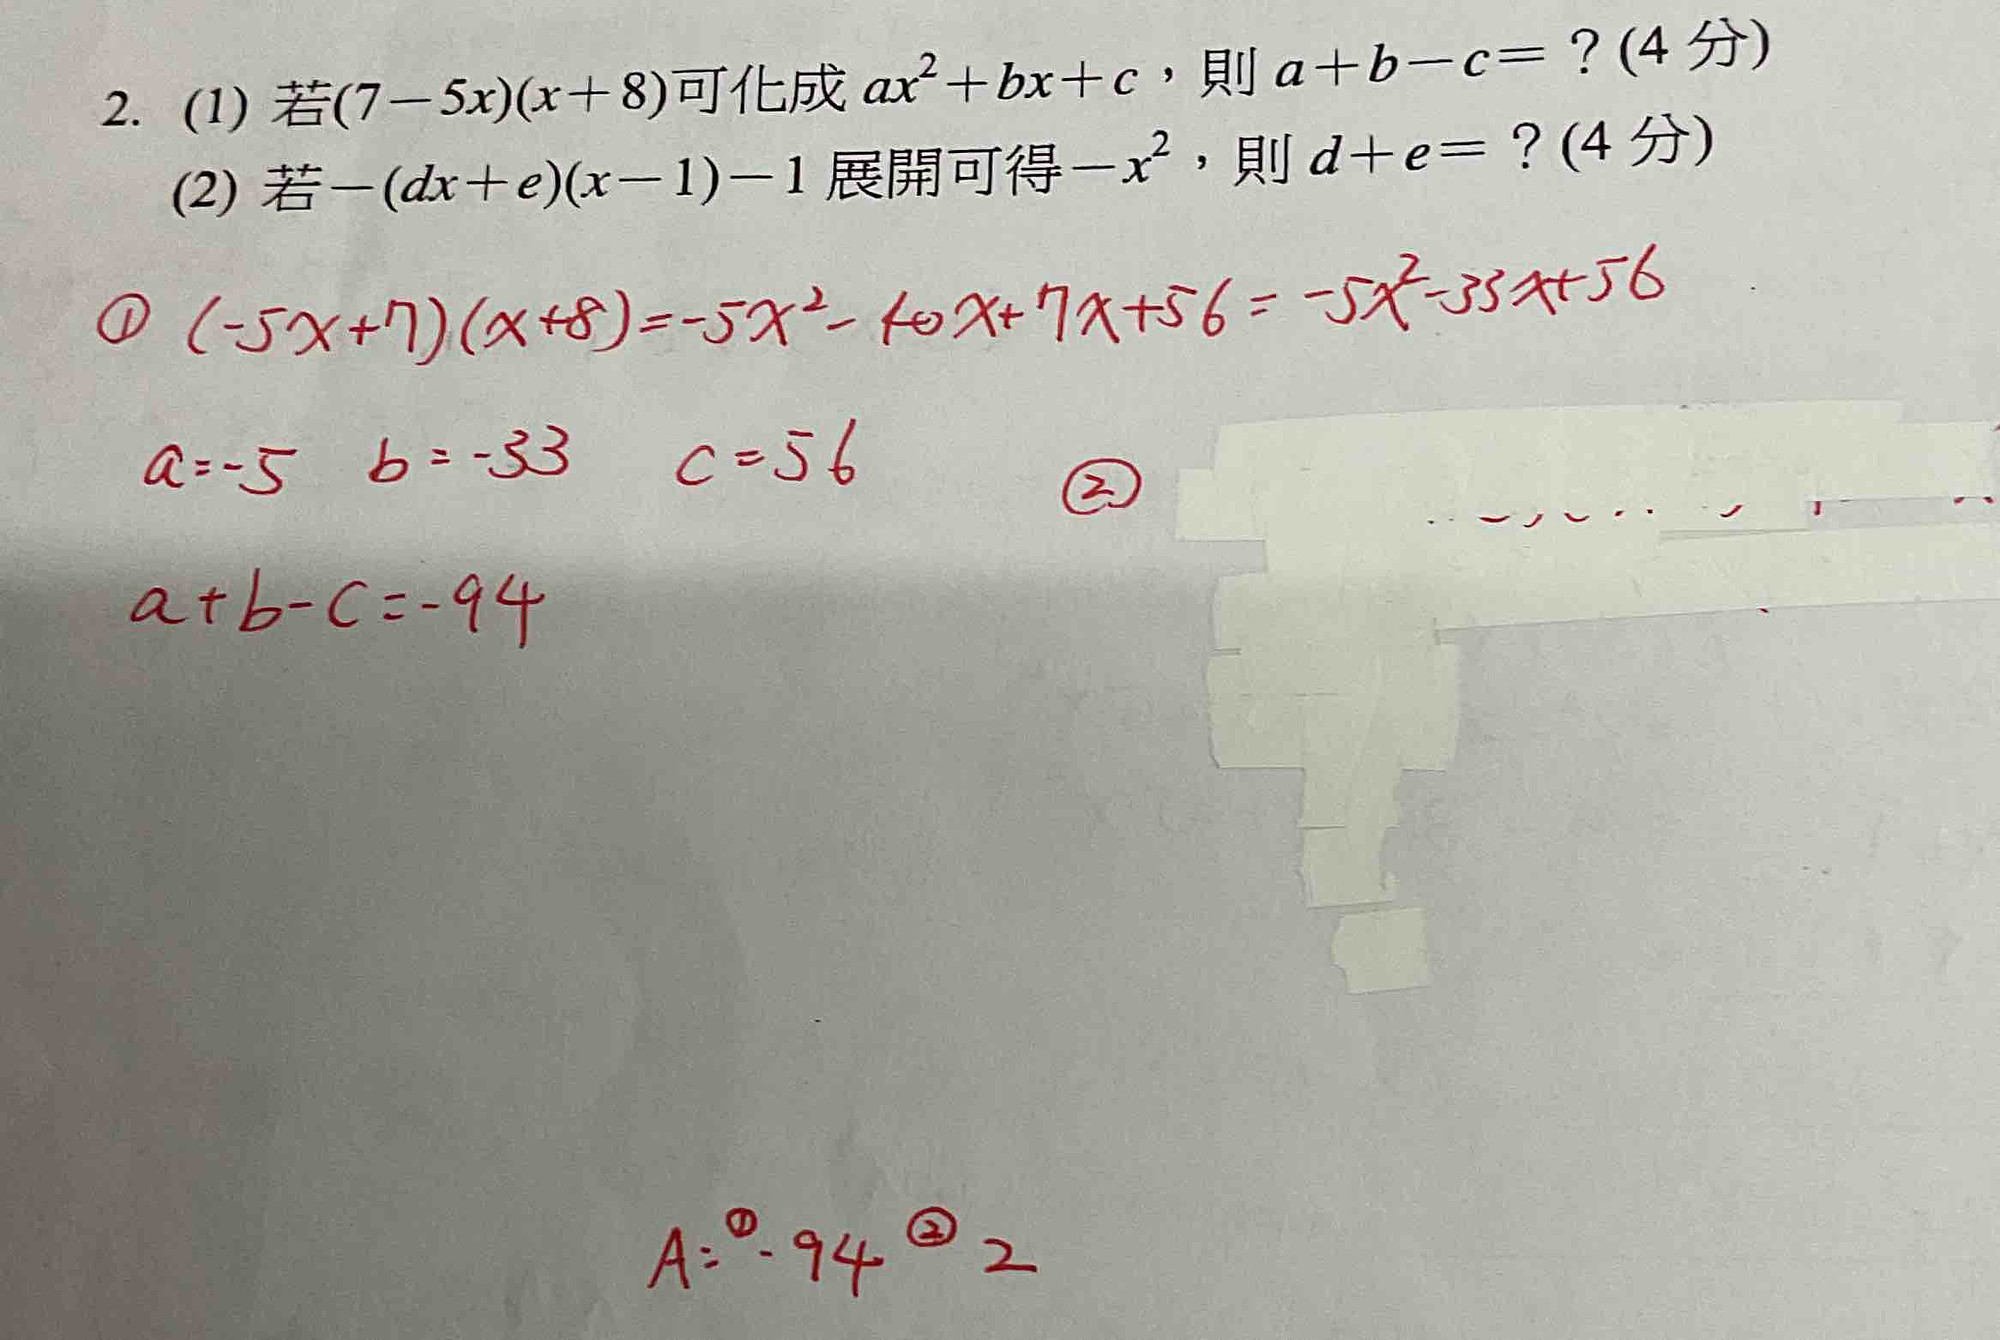 2. (1) 若(7－5x)(x＋8)可化成 ax²＋bx＋c，則 a＋b－c＝？(4 分)
(2) 若－(dx＋e)(x－1)－1 展開可得－x²，則 d＋e＝？(4 分)
① (-5x+7)(x+8)=-5x²-40x+7x+56=-5x²-33x+56
a=-5 b=-33 c=56
②
a+b-c=-94
A:①-94 ②2